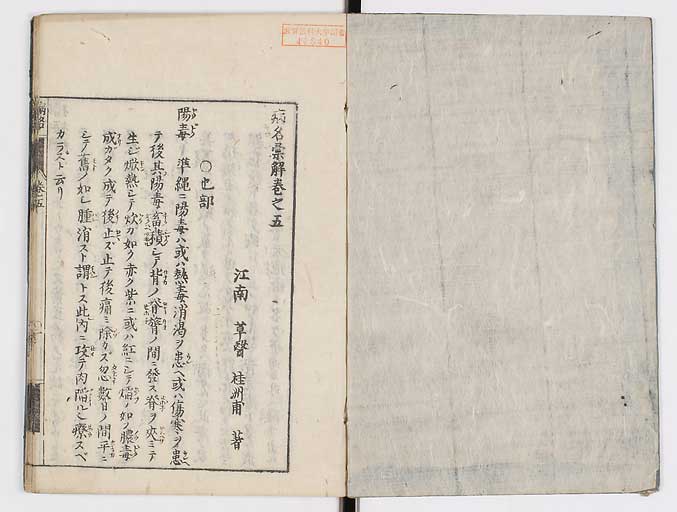 病名彙解巻之五
江南 草醫 桂洲甫 著
〇也部
陽毒 準縄ニ陽毒ハ或ハ熱毒消渇ヲ患ヘ或ハ傷寒ヲ患
テ後其陽毒畜積シテ背ノ脊膂ノ間ニ發ス脊ヲ夾ミテ
生シ焮熱シテ炊カ如ク赤ク紫ニ或ハ紅ニシテ焔ノ如ノ膿毒
成ガタク成テ後止ズ止テ後痛ミ除カズ忽數日ノ間平ニ
シテ舊ノ如ノ腫消スト謂トス此内ニ攻テ内陥ルヒ療スベ
カラスト云リ
巻五